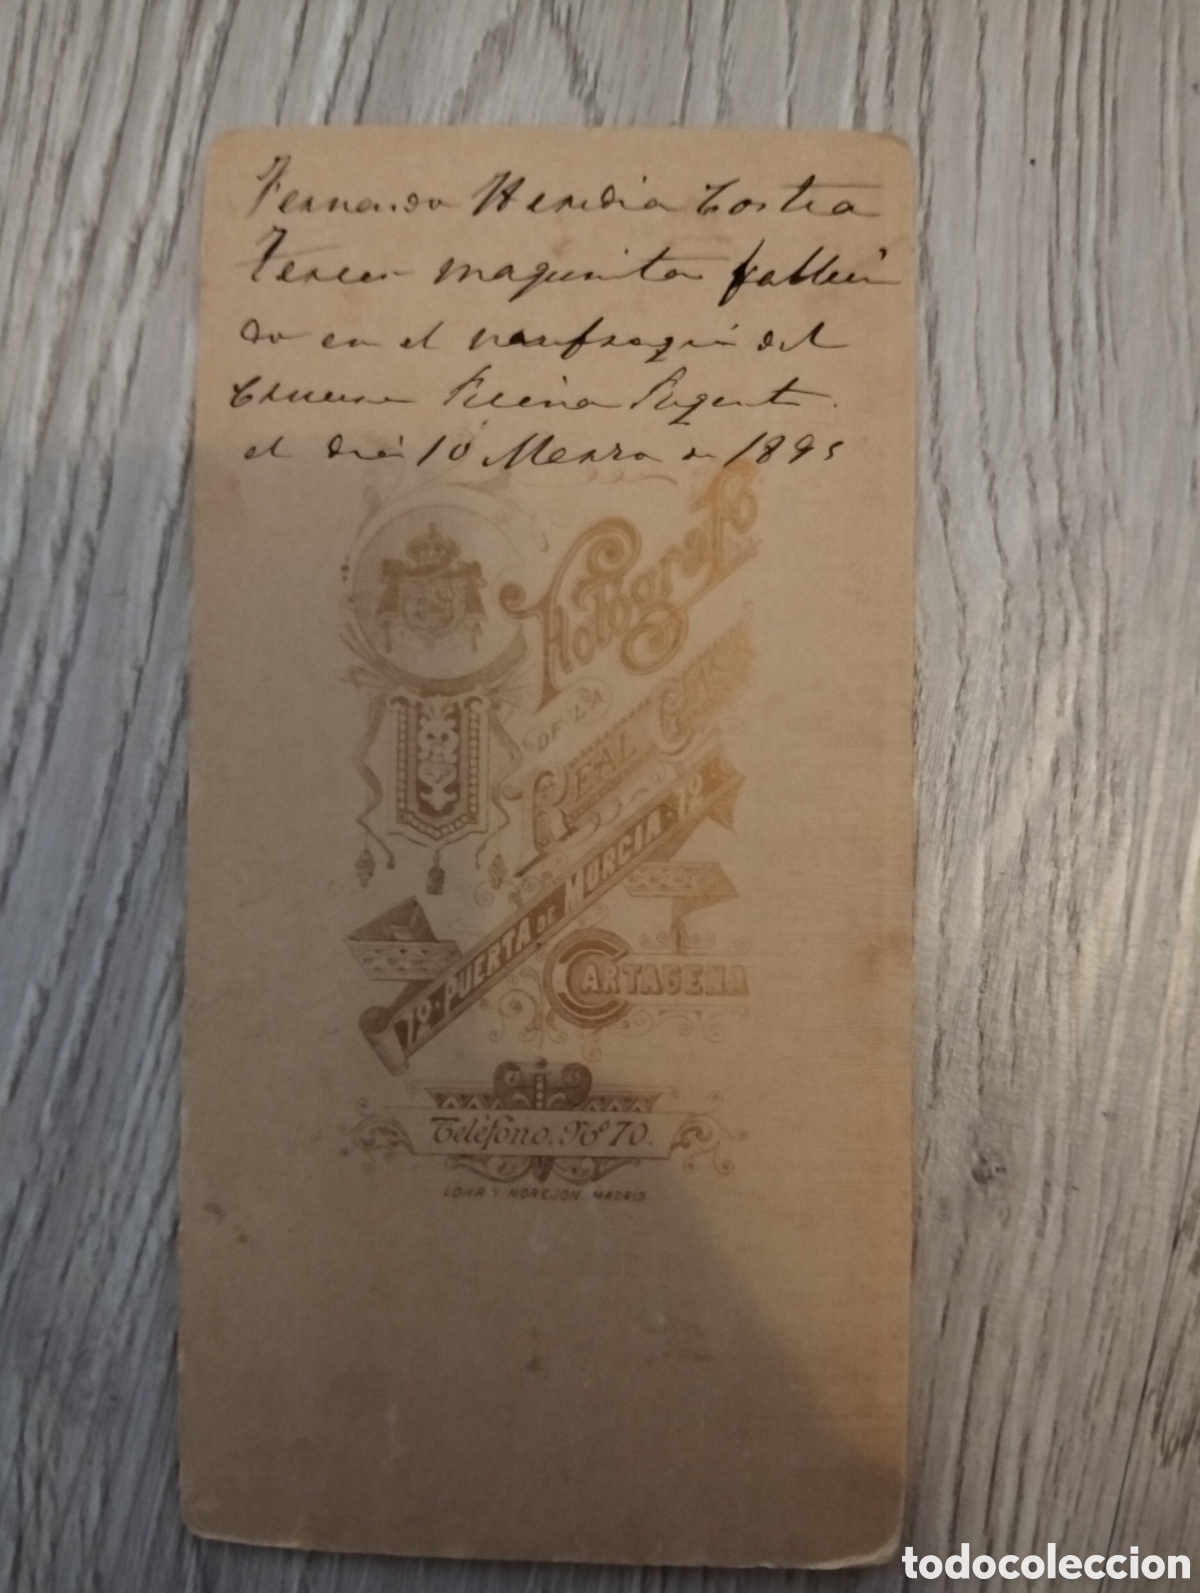 Fernando Heredia Costea
Tercer maquinista falleci
do en el naufragio del
Crucero Reina Regente.
el dia 10 Marzo de 1895
Fotógrafo
DE LA
REAL CASA
12º PUERTA DE MURCIA 12º
CARTAGENA
Teléfono, Nº 70.
LOHR Y MOREJON. MADRID
todocoleccion